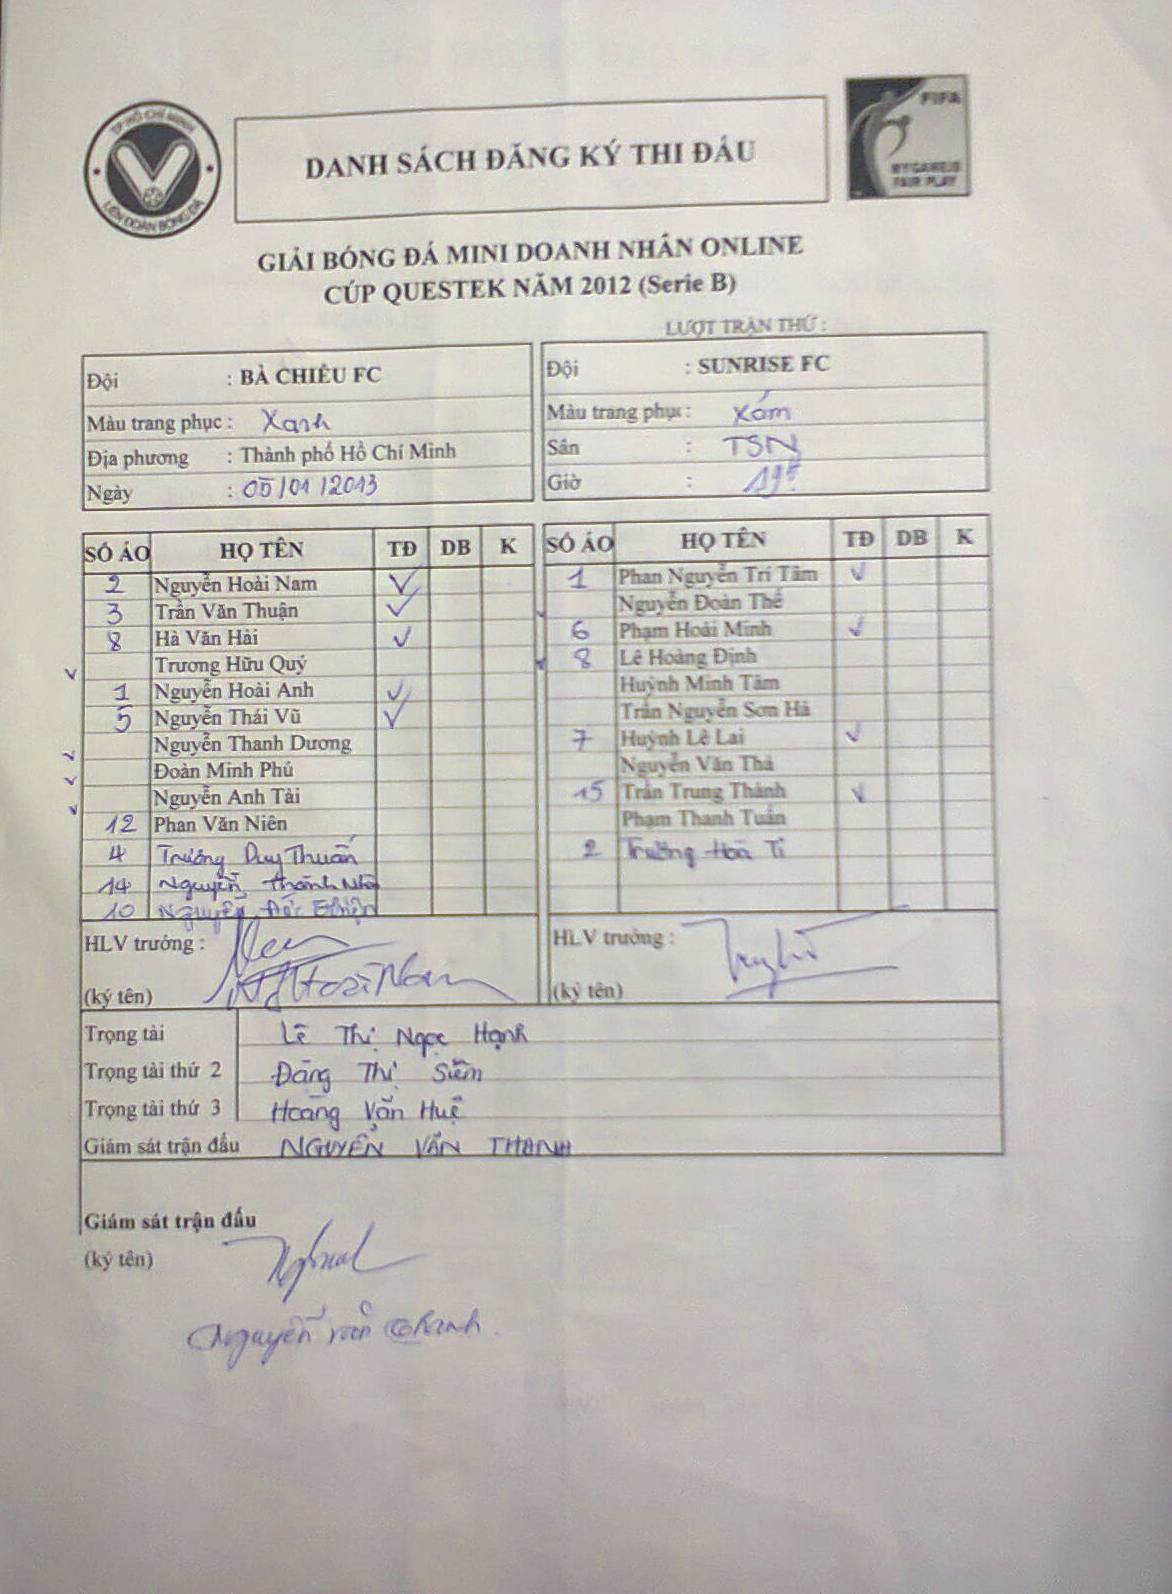 TP HỒ CHÍ MINH
LIÊN ĐOÀN BÓNG ĐÁ
DANH SÁCH ĐĂNG KÝ THI ĐẤU
FIFA
MY GAME IS
FAIR PLAY
GIẢI BÓNG ĐÁ MINI DOANH NHÂN ONLINE
CÚP QUESTEK NĂM 2012 (Serie B)
LƯỢT TRẬN THỨ :
Đội : BÀ CHIỂU FC
Màu trang phục : Xanh
Địa phương : Thành phố Hồ Chí Minh
Ngày : 05/01/2013
Đội : SUNRISE FC
Màu trang phục : Xám
Sân : TSN
Giờ : 19
SỐ ÁO HỌ TÊN TĐ DB K
2 Nguyễn Hoài Nam ✓
3 Trần Văn Thuận ✓
8 Hà Văn Hải ✓
✓ Trương Hữu Quý
1 Nguyễn Hoài Anh ✓
5 Nguyễn Thái Vũ ✓
✓ Nguyễn Thanh Dương
✓ Đoàn Minh Phú
✓ Nguyễn Anh Tài
12 Phan Văn Niên
4 Trương Duy Thuấn
14 Nguyễn Thành
10 Nguyễn Đức
SỐ ÁO HỌ TÊN TĐ DB K
1 Phan Nguyễn Trí Tâm ✓
✓ Nguyễn Đoàn Thế
6 Phạm Hoài Minh ✓
✓ 8 Lê Hoàng Định
Huỳnh Minh Tâm
Trần Nguyễn Sơn Hà
7 Huỳnh Lê Lai ✓
Nguyễn Văn Thả
15 Trần Trung Thành ✓
Phạm Thanh Tuấn
2 Trường Hoà Ti
HLV trưởng :
(ký tên) Hoài Nam
HLV trưởng :
(ký tên)
Trọng tài Lê Thị Ngọc Hạnh
Trọng tài thứ 2 Đặng Thị Siềm
Trọng tài thứ 3 Hoàng Văn Huệ
Giám sát trận đấu NGUYỄN VĂN THANH
Giám sát trận đấu
(ký tên)
Nguyễn văn Thanh